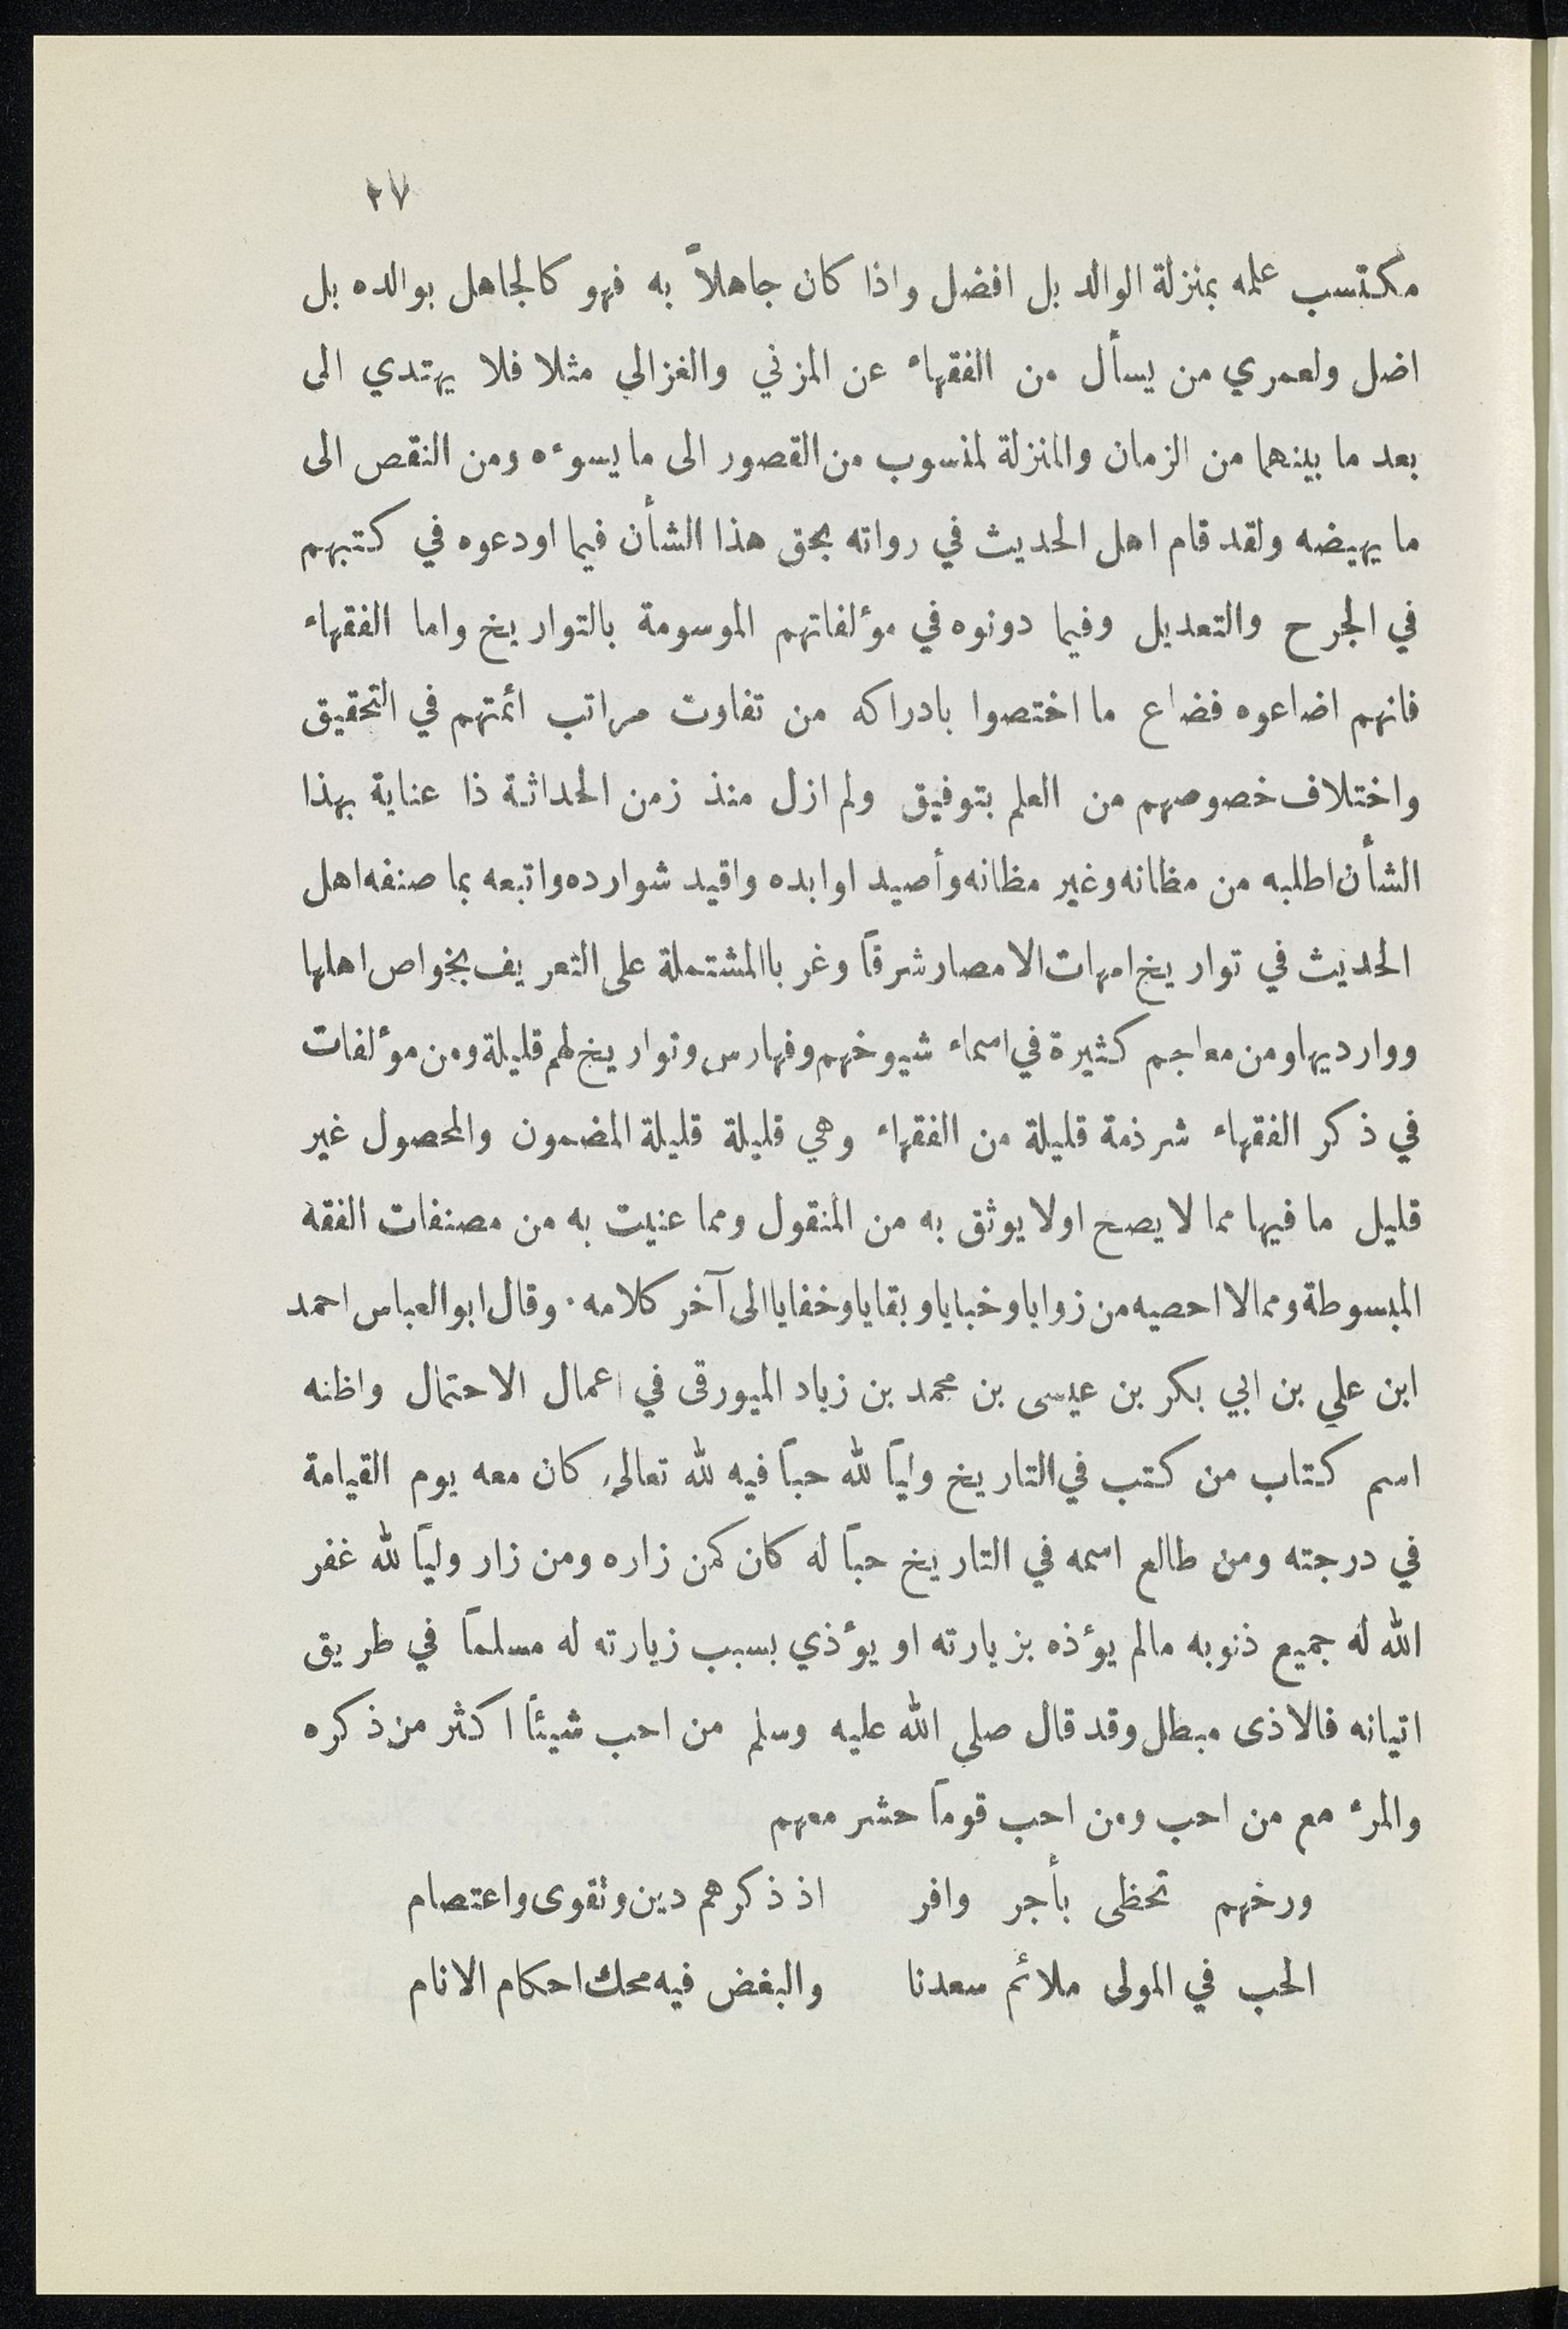 ٢٧
مكتسب علمه بمنزلة الوالد بل افضل واذا كان جاهلاً به فهو كالجاهل بوالده بل
اضل ولعمري من يسأل من الفقهاء عن المزني والغزالي مثلا فلا يهتدي الى
بعد ما بينهما من الزمان والمنزلة لمنسوب من القصور الى ما يسوءه ومن النقص الى
ما يهيضه ولقد قام اهل الحديث في رواته بحق هذا الشأن فيما اودعوه في كتبهم
في الجرح والتعديل وفيما دونوه في مؤلفاتهم الموسومة بالتواريخ واما الفقهاء
فانهم اضاعوه فضاع ما اختصوا بادراكه من تفاوت مراتب ائمتهم في التحقيق
واختلاف خصوصهم من العلم بتوفيق ولم ازل منذ زمن الحداثة ذا عناية بهذا
الشأن اطلبه من مظانه وغير مظانه وأصيد اوابده واقيد شوارده واتبعه بما صنفه اهل
الحديث في تواريخ امهات الامصار شرقاً وغربا المشتملة على التعريف بخواص اهلها
وواردیها ومن معاجم كثيرة في اسماء شيوخهم وفهارس وتواريخ لهم قليلة ومن مؤلفات
في ذكر الفقهاء شرذمة قليلة من الفقهاء وهي قليلة قليلة المضمون والمحصول غير
قليل ما فيها مما لا يصح اولا يوثق به من المنقول ومما عنيت به من مصنفات الفقه
المبسوطة ومما لا احصيه من زوايا وخبايا وبقايا وخفايا الى آخر كلامه . وقال ابو العباس احمد
ابن علي بن ابي بكر بن عيسى بن محمد بن زياد الميورقى في اعمال الاحتمال واظنه
اسم كتاب من كتب في التاريخ ولياً لله حباً فيه لله تعالى كان معه يوم القيامة
في درجته ومن طالع اسمه في التاريخ حباً له كان كمن زاره ومن زار ولياً لله غفر
الله له جميع ذنوبه مالم يؤذه بزيارته او يؤذي بسبب زيارته له مسلماً في طريق
اتيانه فالاذى مبطل وقد قال صلى الله عليه وسلم من احب شيئاً اكثر من ذكره
والمرء مع من احب ومن احب قوماً حشر معهم
ورخهم تحظى بأجر وافر اذ ذكرهم دين وتقوى واعتصام
الحب في المولى ملائم سعدنا والبغض فيه محك احكام الانام